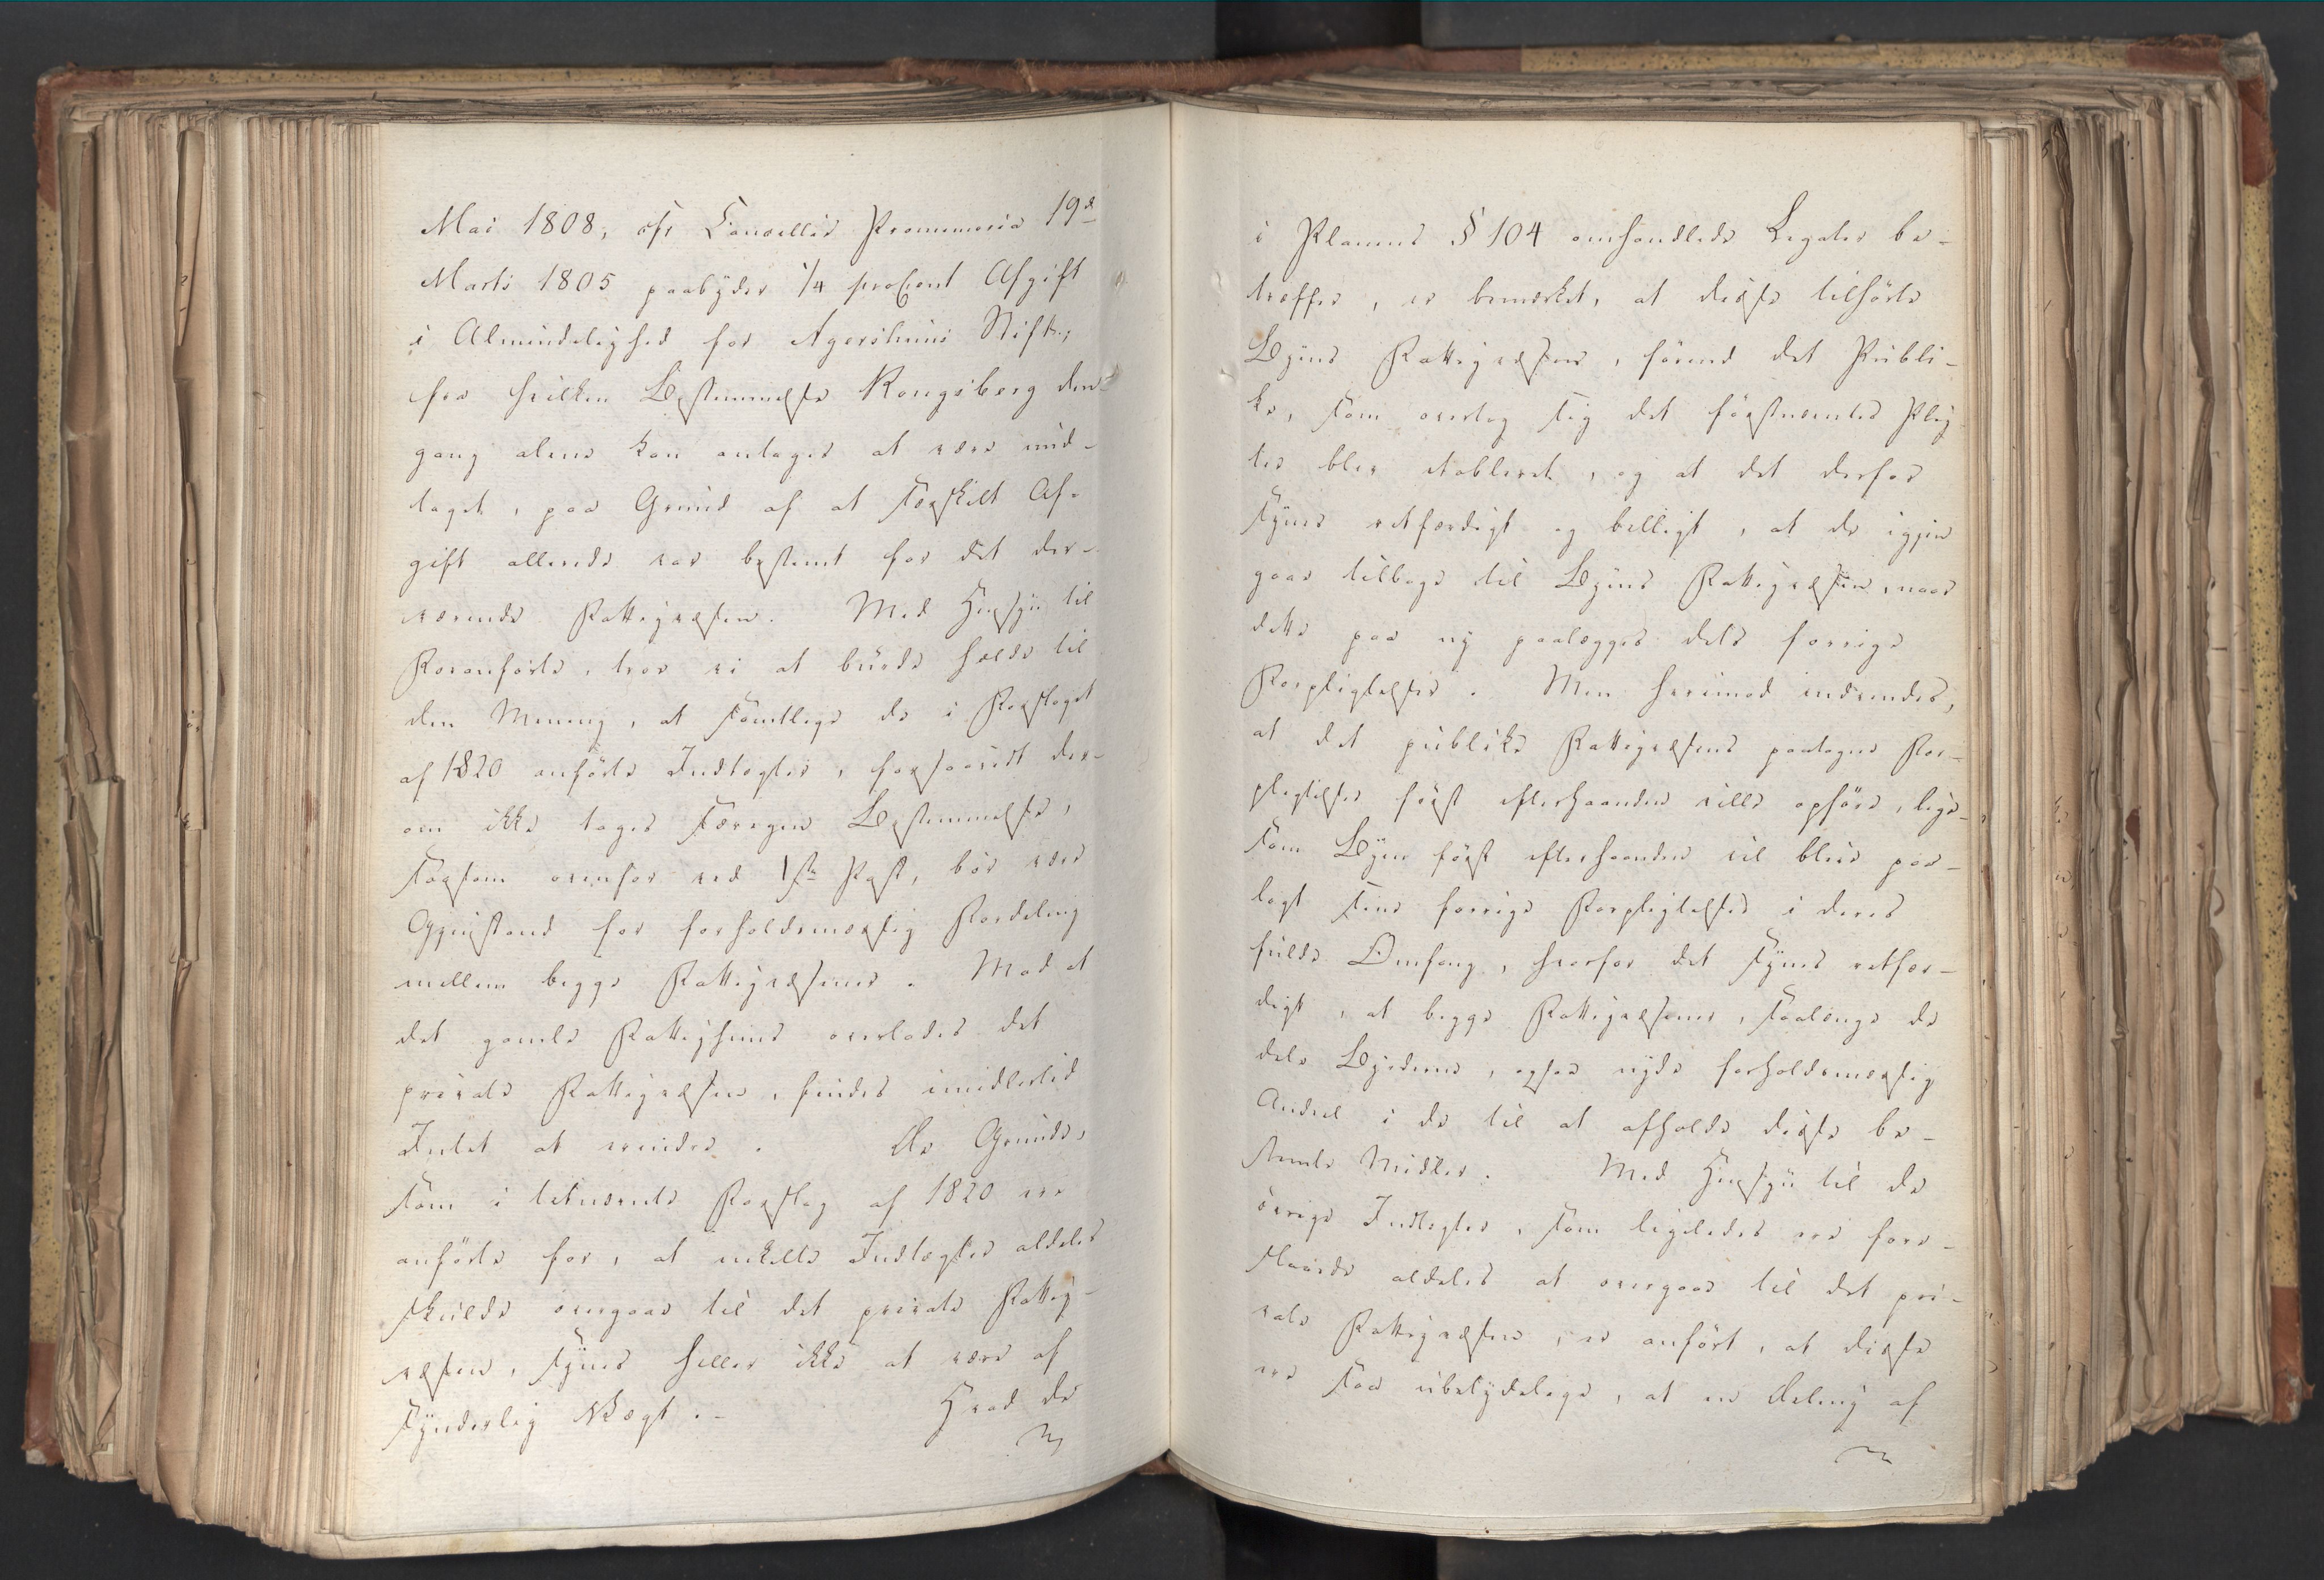 Mai 1808, cfr Cancellie Promemoria 19d
Marts 1805 paabyder 1/4 procent Afgift
i Almindelighed for Agershuus Stift,
fra hvilken Bestemmelse Kongsberg den-
gang alene kan antages at være und-
taget, paa Grund af at særskilt Af-
gift allerede var bestemt for det der-
værende Fattigvæsen. Med Hensyn til
Foranførte, troe vi at burde holde til
den Mening, at samtlige de i Forslaget
af 1820 anførte Indtægter, forsaavidt der-
om ikke tages særegen Bestemmelse,
saasom ovenfor ved 1ste Post, bør være
Gjenstand for forholdsmæssig Fordeling
mellem begge Fattigvæsener. Mod at
det gamle Fattighuus overlades det
private Fattigvæsen, findes imidlertid
Intet at erindre. De Grunde,
som i bemeldte Forslag af 1820 ere
anførte for, at enkelte Indtægter aldeles
skulde overgaae til det private Fattig-
væsen, synes heller ikke at være af
synderlig Vægt. - Hvad de
i Planens § 104 omhandlede Legater be-
træffer, er bemærket, at disse tilhørte
Byens Fattigvæsen, førend det Publi-
ke, som overtog sig det førstnævntes Plig-
ter blev etableret, og at det derfor
synes retfærdigt og billigt, at de igjen
gaae tilbage til Byens Fattigvæsen, naar
dette paa ny paalægges dets forrige
Forpligtelser. Men herimod indvendes,
at det publike Fattigvæsens paatagne For-
pligtelser først efterhaanden ville ophøre, lige-
som Byen først efterhaanden vil blive paa-
lagt sine forrige Forpligtelser i deres
fulde Omfang, hvorfor det synes retfær-
digt, at begge Fattigvæsener, saalænge de
dele Byrderne, ogsaa nyde forholdsmæssig
Andeel i de til at afholde disse be-
stemte Midler. Med Hensyn til de
øvrige Indtægter, som ligeledes ere fore-
slaaede aldeles at overgaae til det pri-
vate Fattigvæsen, er anført, at disse
ere saa ubetydelige, at en Deling af